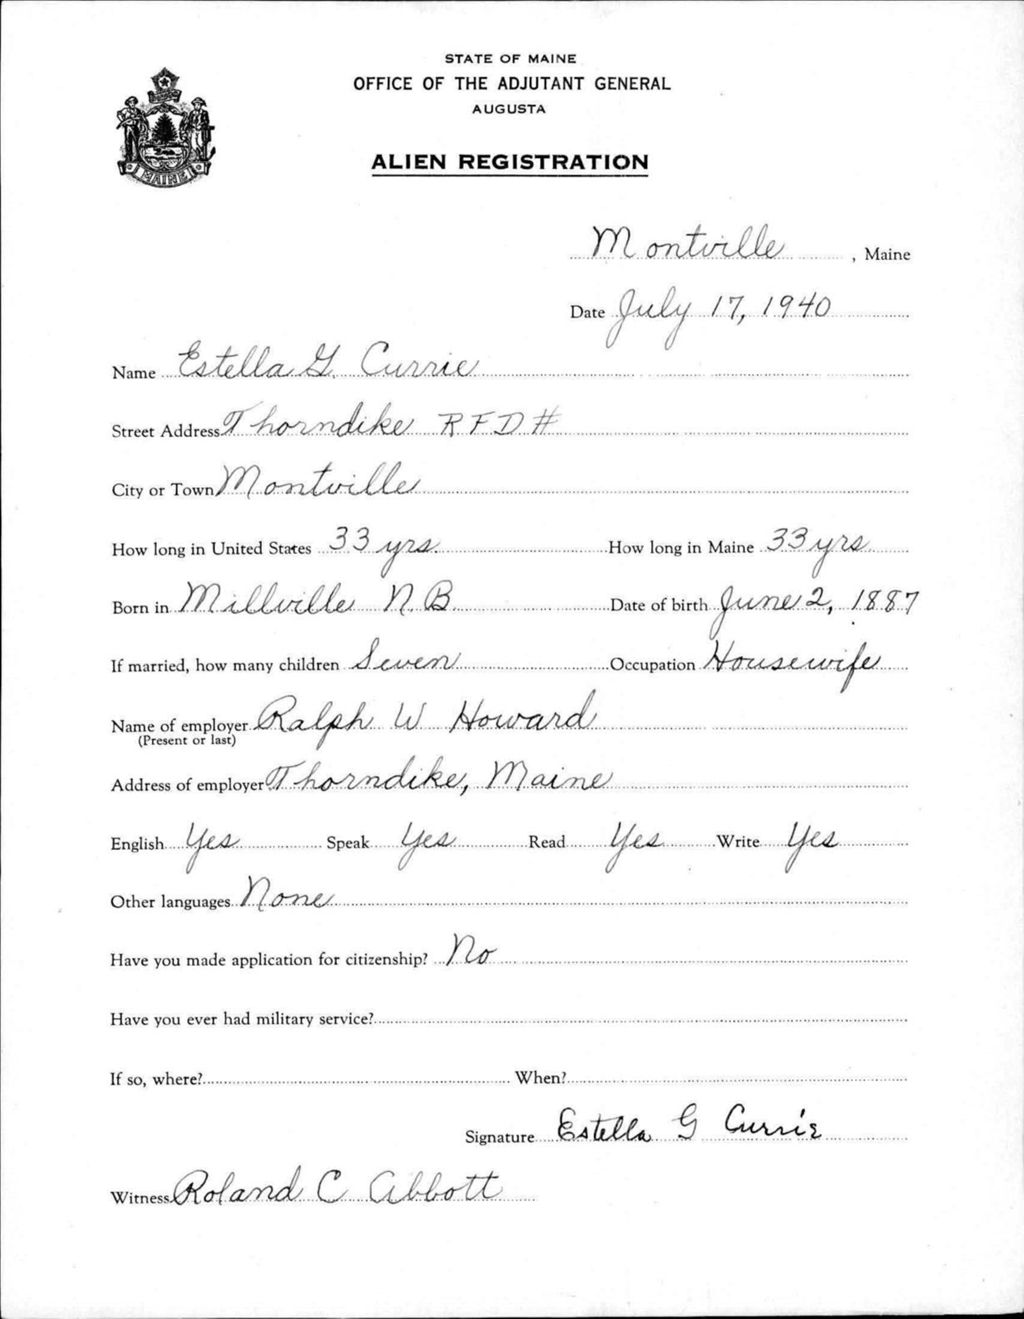 STATE OF MAINE
OFFICE OF THE ADJUTANT GENERAL
AUGUSTA
ALIEN REGISTRATION
MAINE
Montville, Maine
Date July 17, 1940
Name Estella G. Currie
Street Address Thorndike RFD#
City or Town Montville
How long in United States 33 yrs. How long in Maine 33 yrs
Born in Millville N.B. Date of birth June 2, 1887
If married, how many children Seven Occupation Housewife
Name of employer Ralph W Howard
(Present or last)
Address of employer Thorndike, Maine
English Yes Speak Yes Read Yes Write Yes
Other languages None
Have you made application for citizenship? No
Have you ever had military service?
If so, where? When?
Signature Estella G Currie
Witness Roland C Abbott